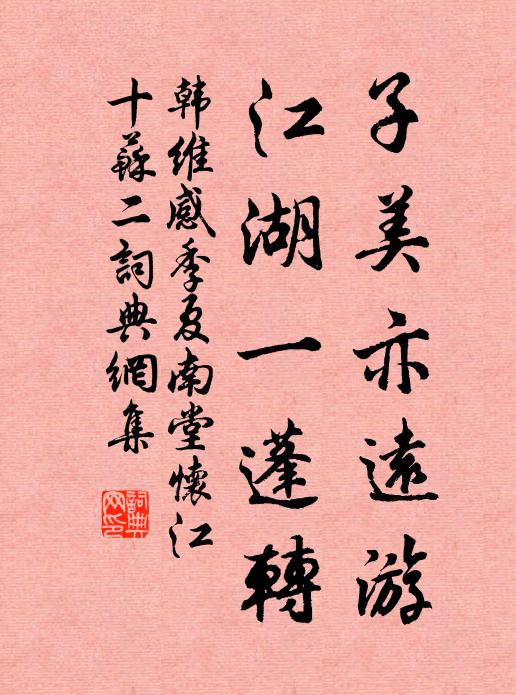 子美亦遠游
江湖一蓬轉
韩維感季夏南堂懷江
十蘇二詞典網集
詞典网印